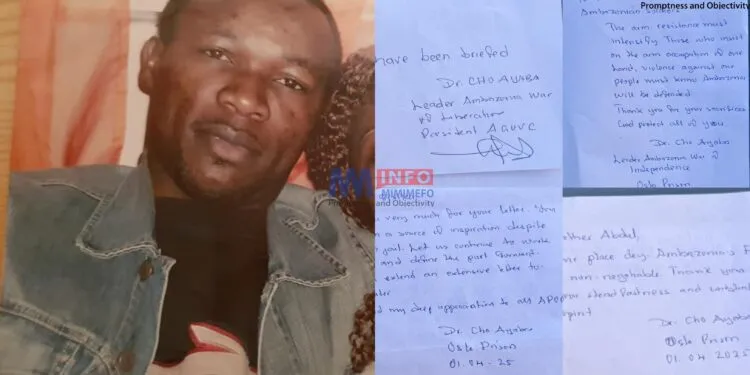 Promptness and Objectivity
have been briefed
Dr. CHO AYABA
Leader Ambazonia War
of Liberation
President AGOVC
Ambazonian
The arm resistance must
intensify. Those who insist
on the arm occupation of our
land, violence against our
people must know Ambazonia
will be defended.
Thank you for your sacrifices
God protect all of you
Dr. Cho Ayaba
Leader Ambazonia War of
Independence
Oslo Prison
MIMI INFO
MIMIMEFO
Promptness and Objectivity
very much for your letter. You
a source of inspiration despite
jail. Let us continue to work
and define the part forward
extend an extensive letter to
my deep appreciation to all
Dr. Cho Ayaba
Oslo Prison
01.04-25
other Abdul,
place dey. Ambazonia's
non-negotiable. Thank you
steadfastness and
spirit
Dr. Cho Ayaba
Oslo Prison
01.04 2025